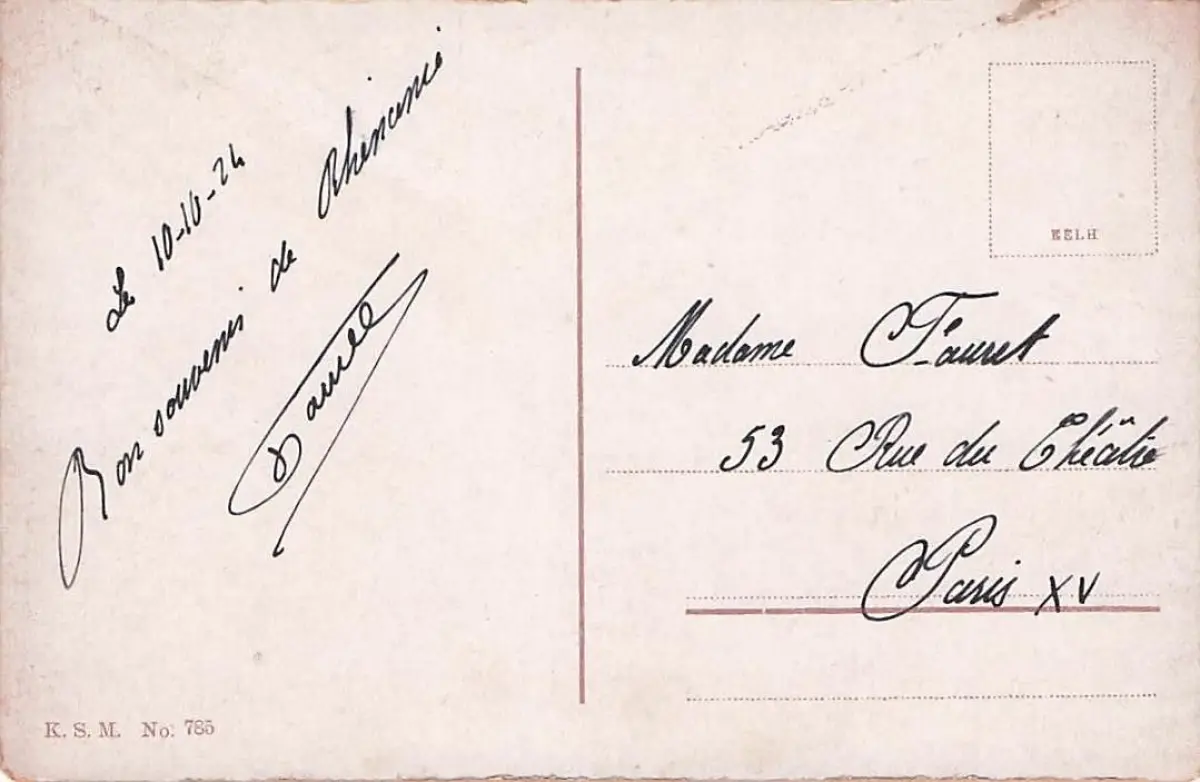 Le 10-10-24
Bon souvenir de Rhénanie
EELH
Madame Fauret
53 Rue du Théâtre
Paris XV
K. S. M. No: 785